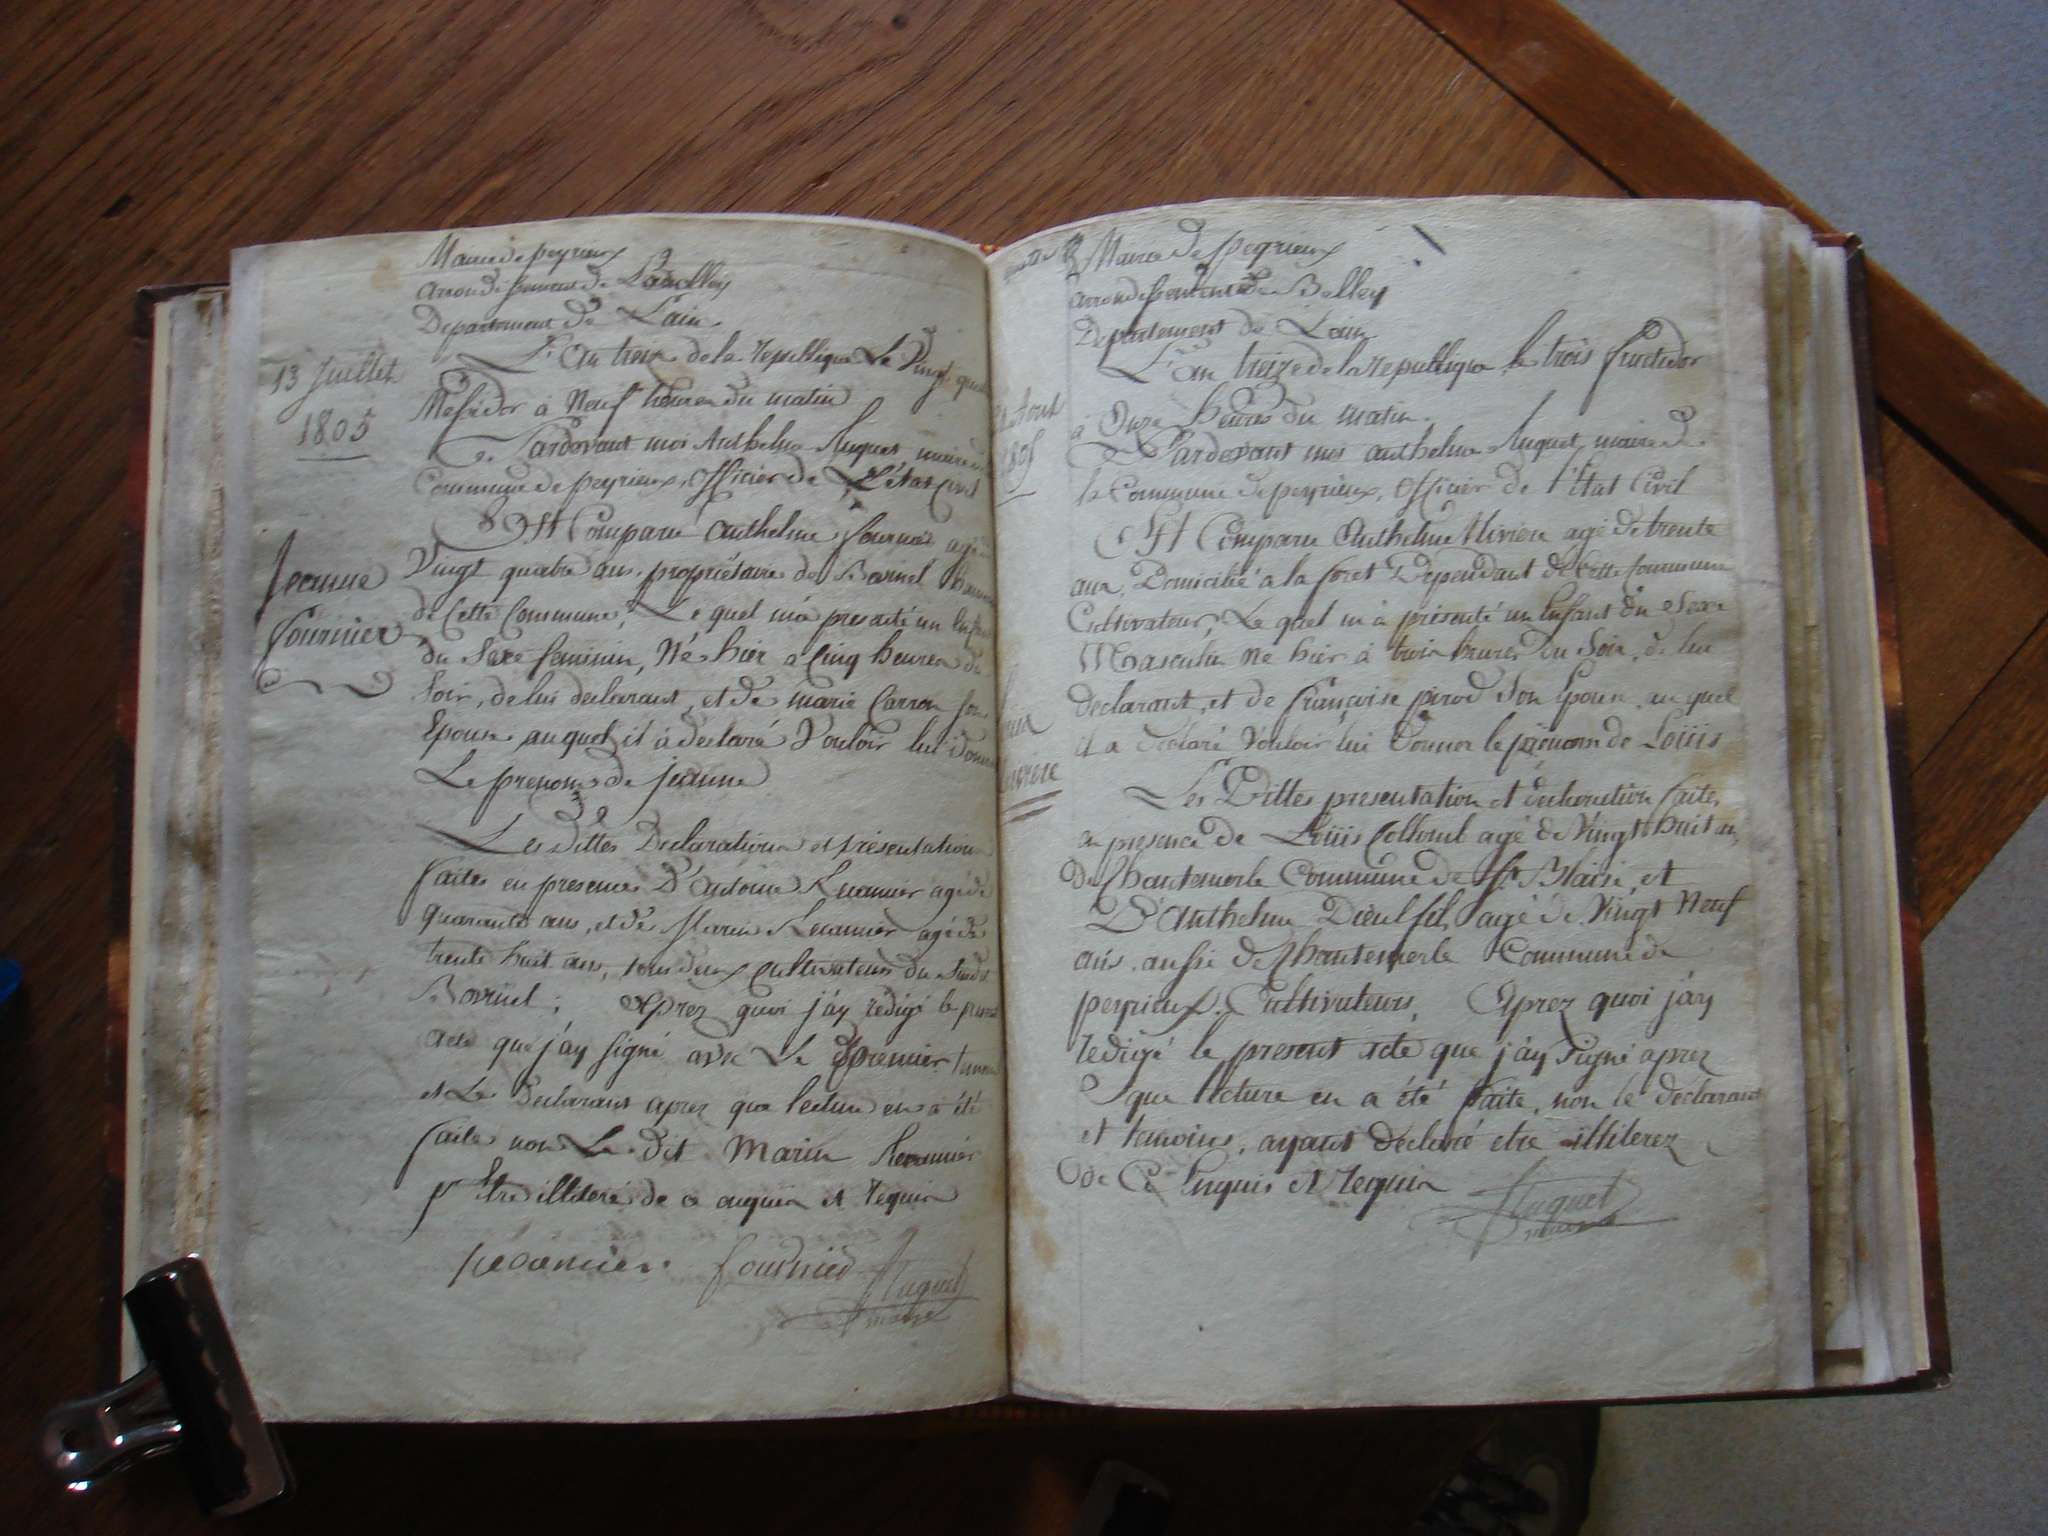 Mairie de peyrieux
arrondissement de Belley
Departement de Lain
13 Juillet
1805
L'an treize de la republique Le Vingt quatre
Messidor à Neuf heures du matin
Pardevant moi Anthelme Huguet maire de
Commune de peyrieux, Officier de L'état Civil
Est Comparu Anthelme fournier agé
Jeanne
fournier
Vingt quatre ans, propriétaire de Bovinel
de Cette Commune, Le quel m'à presenté un Enfant
du Sexe feminin, Né hier à Cinq heures du
Soir, de lui declarant, et de marie Carron Son
Epouse auquel il à declaré Vouloir lui donner
Le prenoms de jeanne
Les dittes Declarations et présentation
faites en presences D'Antoine agé de
quarante ans, et de Marin agé de
trente huit ans, tous deux cultivateurs du Susdit
Après quoi j'ay redigé le present
acte que j'ay signé avec Le premier temoin
et Le Declarant aprez que lecture en à été
faite non Le dit Marin
pr Etre illiteré de ce enquis et requis
fournier Huguet
maire
Mairie de peyrieux
arrondissement de Belley
Departement de Lain
L'an treize de la republique, le trois fructidor
à Onze heures du matin.
21 Aout
1805
Pardevant moi anthelme Huguet, maire de
la Commune de peyrieux, Officier de l'État Civil
Est Comparu Anthelme Mivière agé de trente
ans, Domicilié à la foret Dependant de Cette Commune
Cultivateur, Le quel m'à présenté un Enfant du Sexe
Masculin né hier à trois heures du Soir, de lui
declarant, et de françoise pirod Son Epouse, au quel
il a declaré Vouloir lui donner le prénom de Loüis
Les Dittes presentation et declaration faites
en presence de Loüis Collomb agé de Vingt huit ans
de Chantemerle Commune de St Blaise, et
D'Anthelme Dieulfils, agé de Vingt Neuf
ans, aussi de Chantemerle Commune de
peyrieux, Cultivateurs, Aprez quoi j'ay
redigé le present acte que j'ay Signé aprez
que lecture en a été faite, non le declarant
et temoins, ayant declaré etre illiterez
de Ce Enquis et requis
Huguet
maire